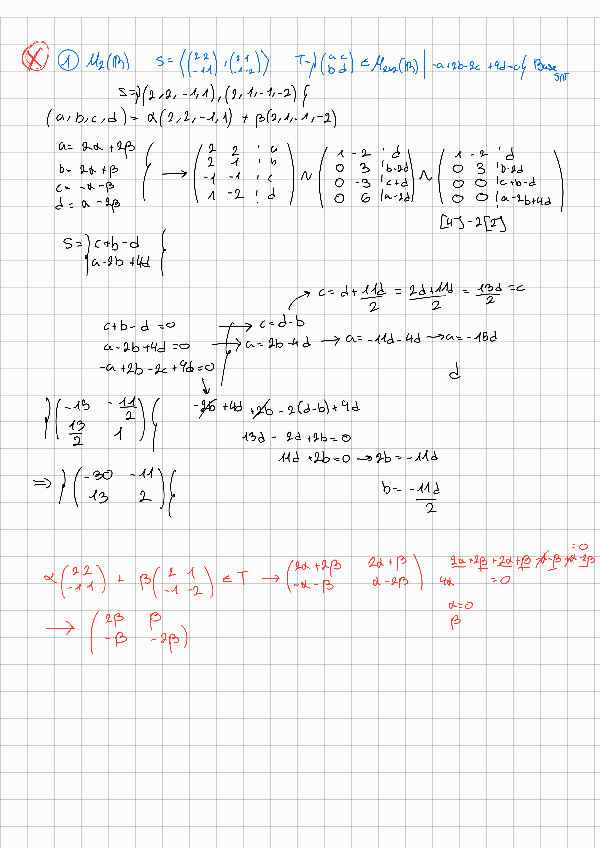 ① M₂(ℝ) S = ⟨(2 2 / -1 1), (2 1 / 1 -2)⟩ T = {(a c / b d) ∈ M₂ₓ₂(ℝ) | -a+2b-2c+9d=0} Base S∩T
S = {(2,2,-1,1),(2,1,-1,-2)}
(a,b,c,d) = α(2,2,-1,1) + β(2,1,-1,-2)
a = 2α+2β
b = 2α+β
c = -α-β
d = α-2β
→ (2 2 | a / 2 1 | b / -1 -1 | c / 1 -2 | d) ~ (1 -2 | d / 0 3 | b-2d / 0 -3 | c+d / 0 6 | a-2d) ~ (1 -2 | d / 0 3 | b-2d / 0 0 | c+b-d / 0 0 | a-2b+4d)
[4]-2[2]
S = {c+b-d
a-2b+4d}
c = d + 11d/2 = 2d+11d/2 = 13d/2 = c
c+b-d=0 → c=d-b
a-2b+4d=0 → a=2b-4d → a=-11d-4d → a=-15d
-a+2b-2c+9d=0
d
{(-15 -11/2 / 13/2 1)}
-2b+4d+2b-2(d-b)+9d
13d-2d+2b=0
11d+2b=0 → 2b=-11d
⇒ {(-30 -11 / 13 2)}
b = -11d/2
α(2 2 / -1 1) + β(2 1 / -1 -2) ∈ T → (2α+2β 2α+β / -α-β α-2β) 2α+2β+2α+β-α-β+α-2β =0
4α =0
α=0
β
→ (2β β / -β -2β)